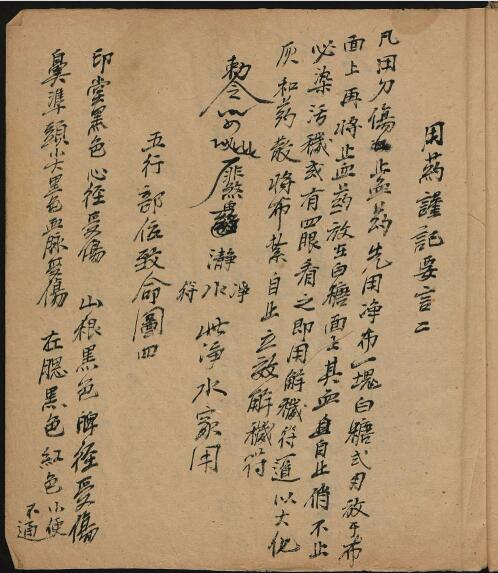 用药謹記要言二
凡用刀傷止血药先用净布一塊白糖式匁放于布
面上再將止血药放在白糖面上其血自止倘不止
必染污穢或有四眼看之即用解穢符遁以火化
灰和药散將布紮自止立效解穢符
勅令
瀞水 净符 此淨水家用
五行部位致命圖四
印堂黑色心徑受傷 山根黑色脾徑受傷
鼻準頭尖黑色血脉受傷 在腮黑色紅色小便不通